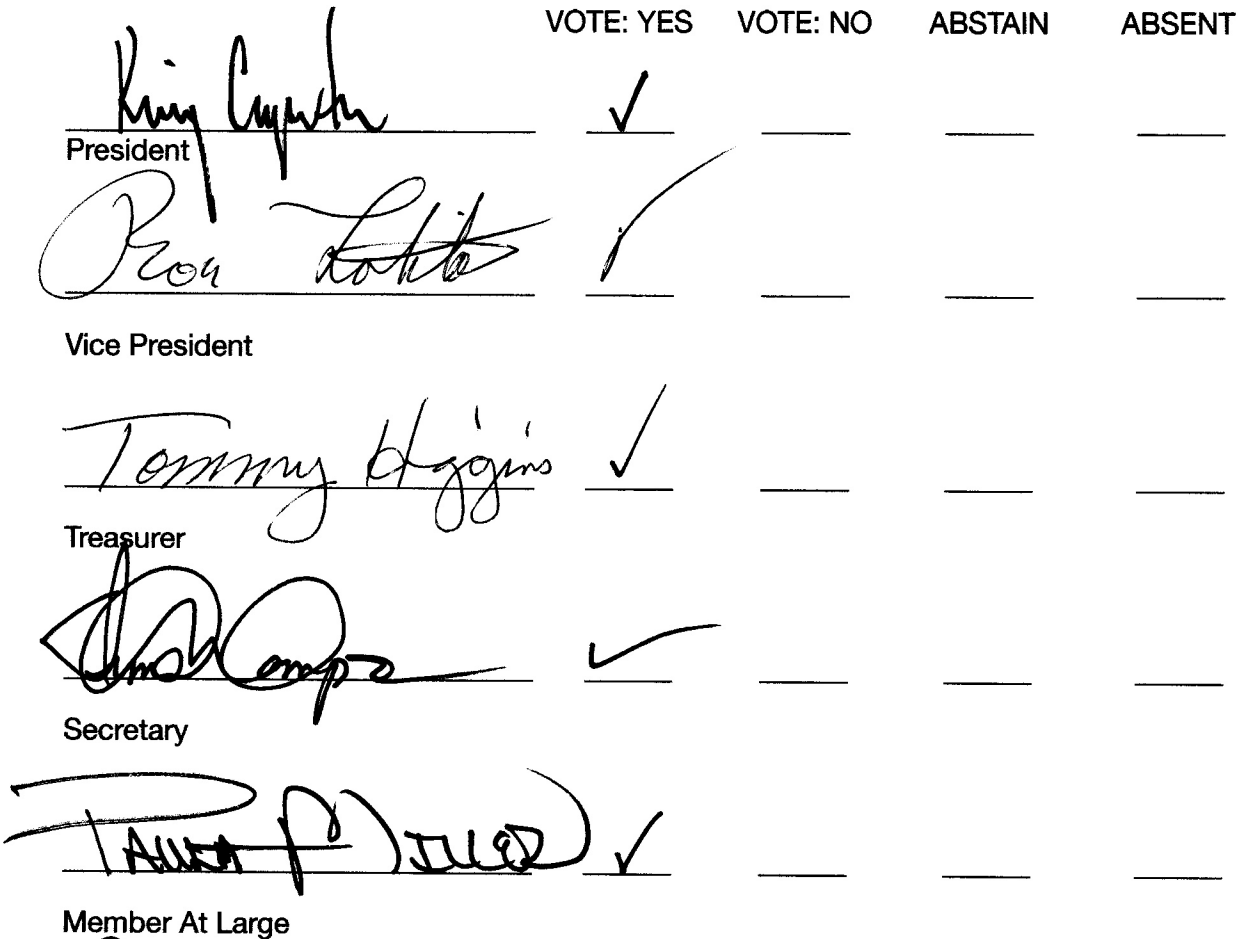 VOTE: YES VOTE: NO ABSTAIN ABSENT
King ✓
President
Ron ✓
Vice President
Tommy Higgins ✓
Treasurer
✓
Secretary
✓
Member At Large